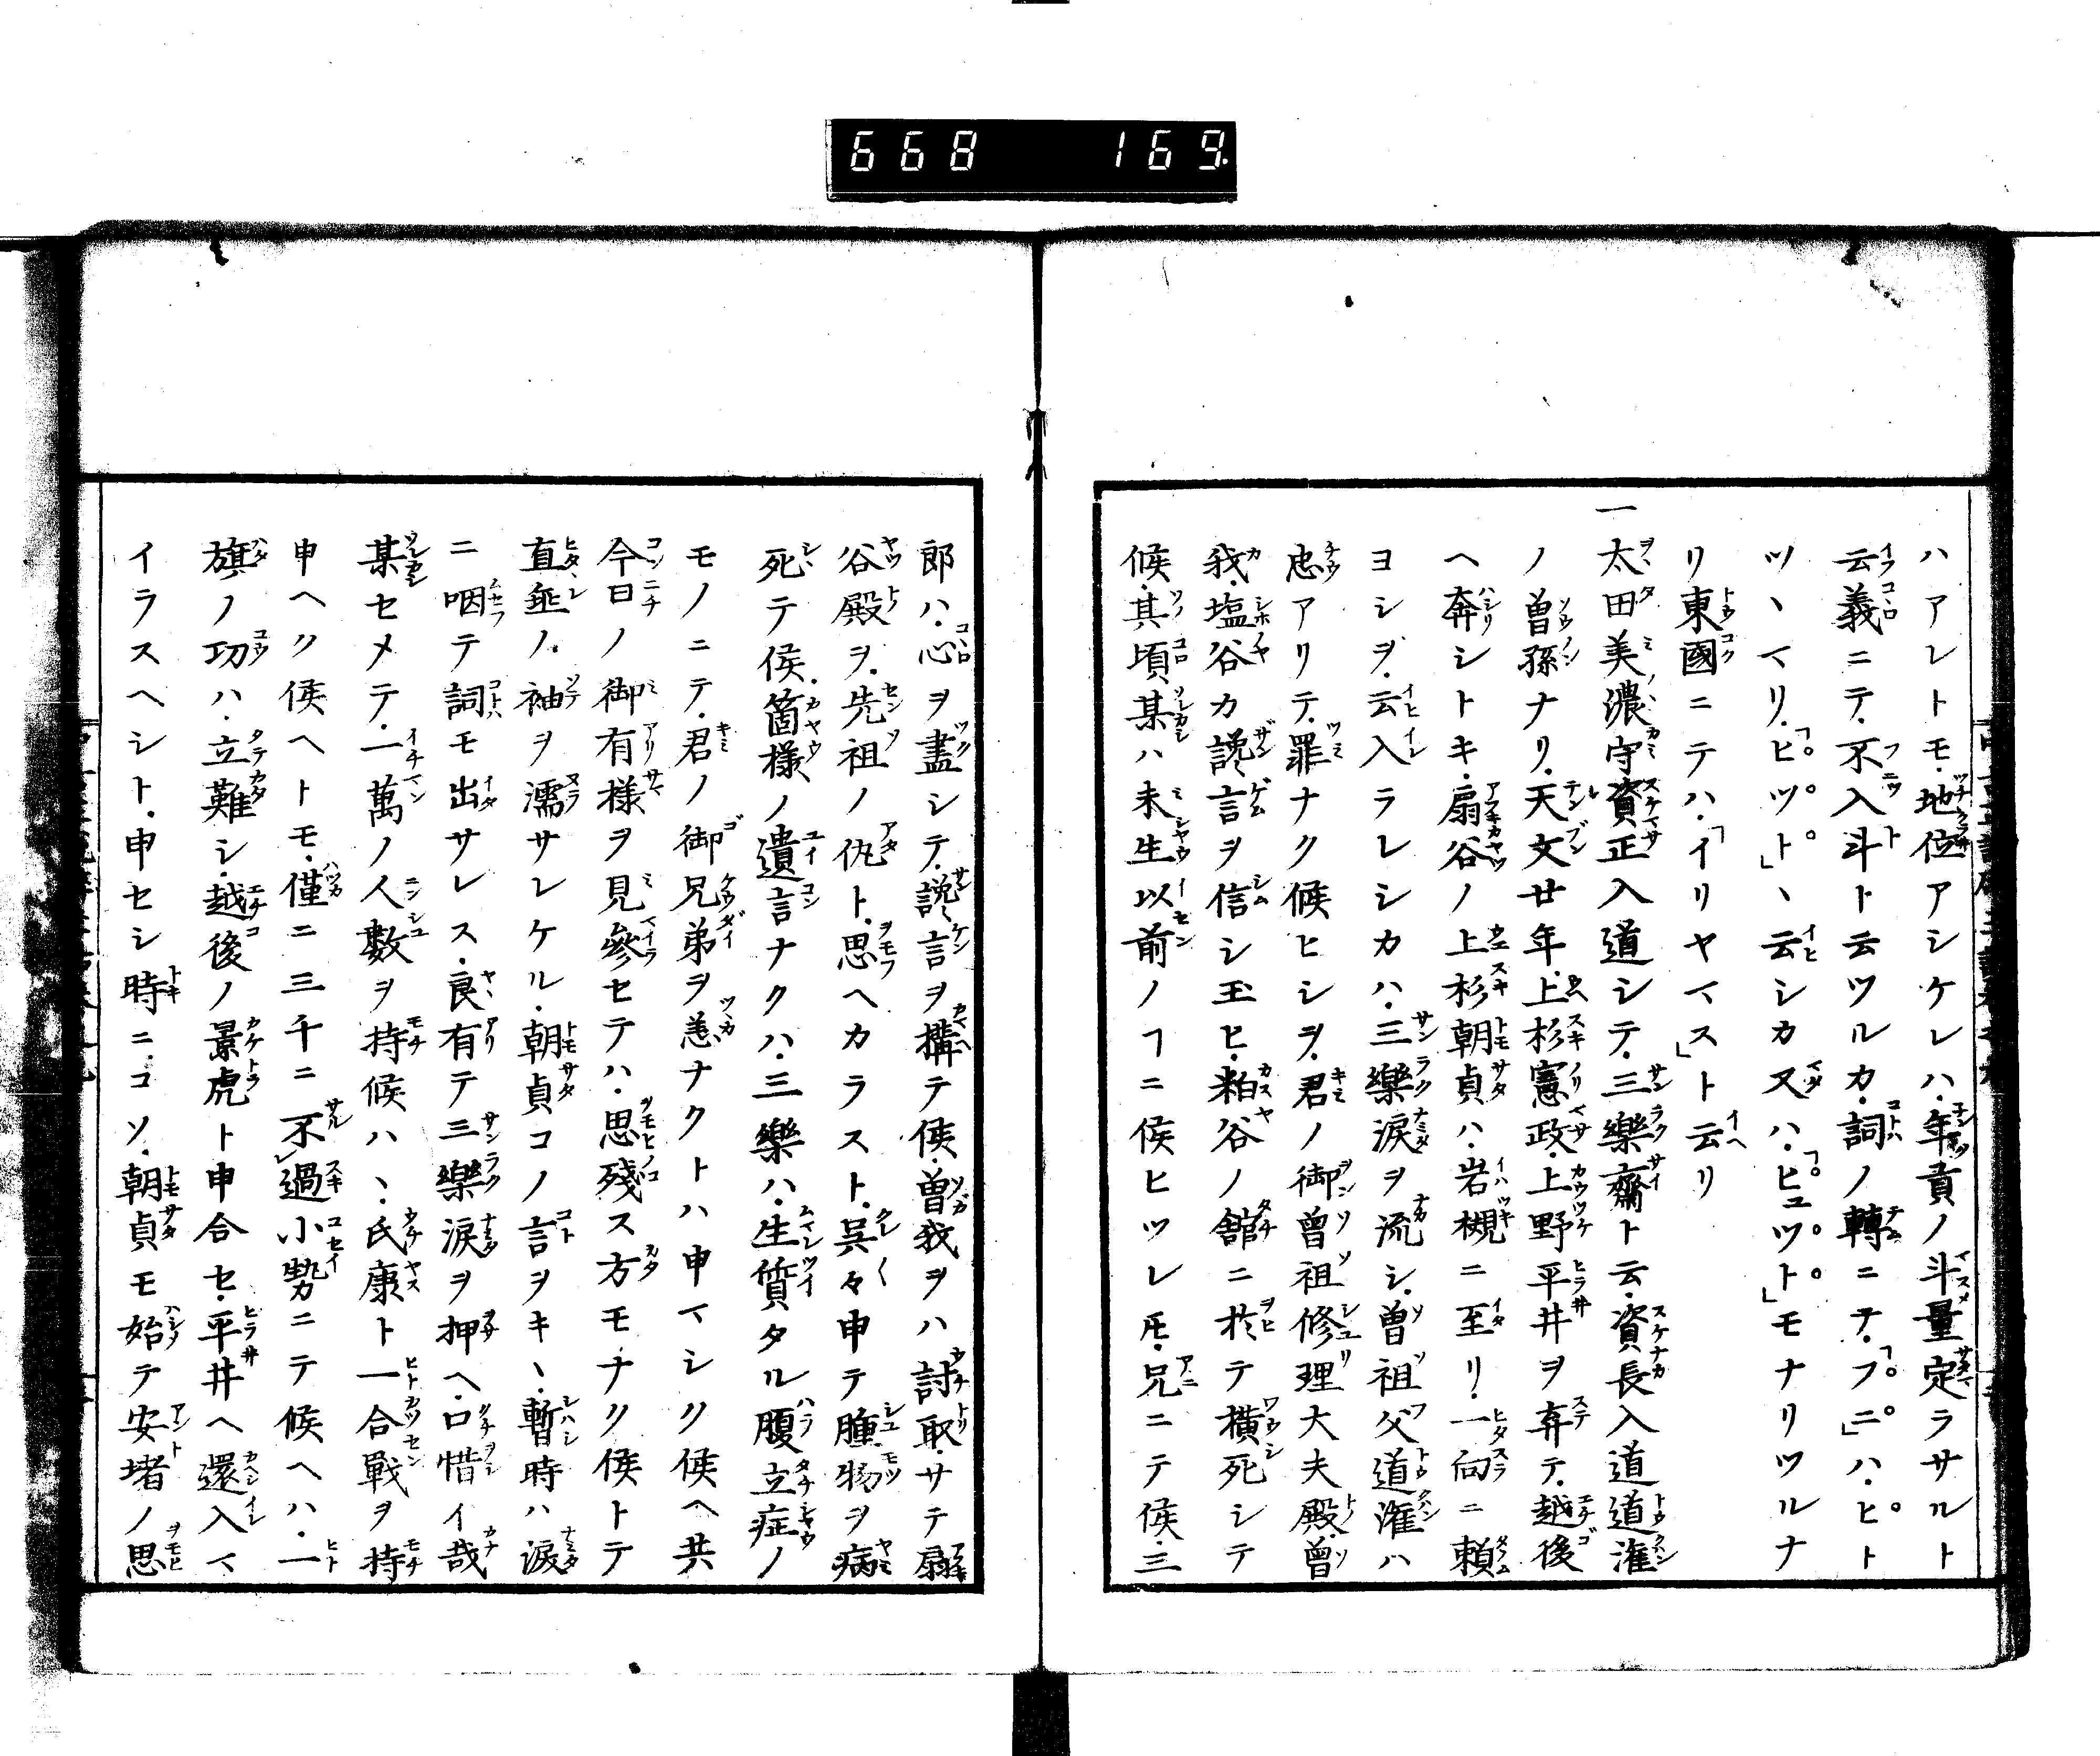 668 169.
ハアレトモ地位アシケレハ年貢ノ斗量定ラサルト
云義ニテ不入斗ト云ツルカ詞ノ轉ニテ「フ゜ニ゜」ハヒ゜ト
ツヽマリ「ヒ゜ツ゜ト゜」ヽ云シカ又ハ「ヒ゜ュツ゜ト゜」モナリツルナ
リ東國ニテハ「イリヤマス」ト云リ
一太田美濃守資正入道シテ三樂齋ト云資長入道道潅
ノ曽孫ナリ天文廿年上杉憲政上野平井ヲ弃テ越後
ヘ奔シトキ扇谷ノ上杉朝貞ハ岩槻ニ至リ一向ニ頼
ヨシヲ云入ラレシカハ三樂涙ヲ流シ曽祖父道潅ハ
忠アリテ罪ナク候ヒシヲ君ノ御曽祖修理大夫殿曽
我塩谷カ讒言ヲ信シ玉ヒ粕谷ノ舘ニ於テ横死シテ
候其頃某ハ未生以前ノヿニ候ヒツレ𪜈兄ニテ候三
郎ハ心ヲ盡シテ讒言ヲ搆テ候曽我ヲハ討取サテ扇
谷殿ヲ先祖ノ仇ト思ヘカラスト呉々申テ腫物ヲ病
死テ候箇樣ノ遺言ナクハ三樂ハ生質タル腹立症ノ
モノニテ君ノ御兄弟ヲ恙ナクトハ申マシク候ヘ共
今日ノ御有樣ヲ見參セテハ思殘ス方モナク候トテ
直垂ノ袖ヲ濡サレケル朝貞コノ言ヲキヽ暫時ハ涙
ニ咽テ詞モ出サレス良有テ三樂涙ヲ押ヘ口惜イ哉
某セメテ一萬ノ人數ヲ持候ハヽ氏康ト一合戰ヲ持
申ヘク候ヘトモ僅ニ三千ニ不過小勢ニテ候ヘハ一
旗ノ功ハ立難シ越後ノ景虎ト申合セ平井ヘ還入マ
イラスヘシト申セシ時ニコソ朝貞モ始テ安堵ノ思